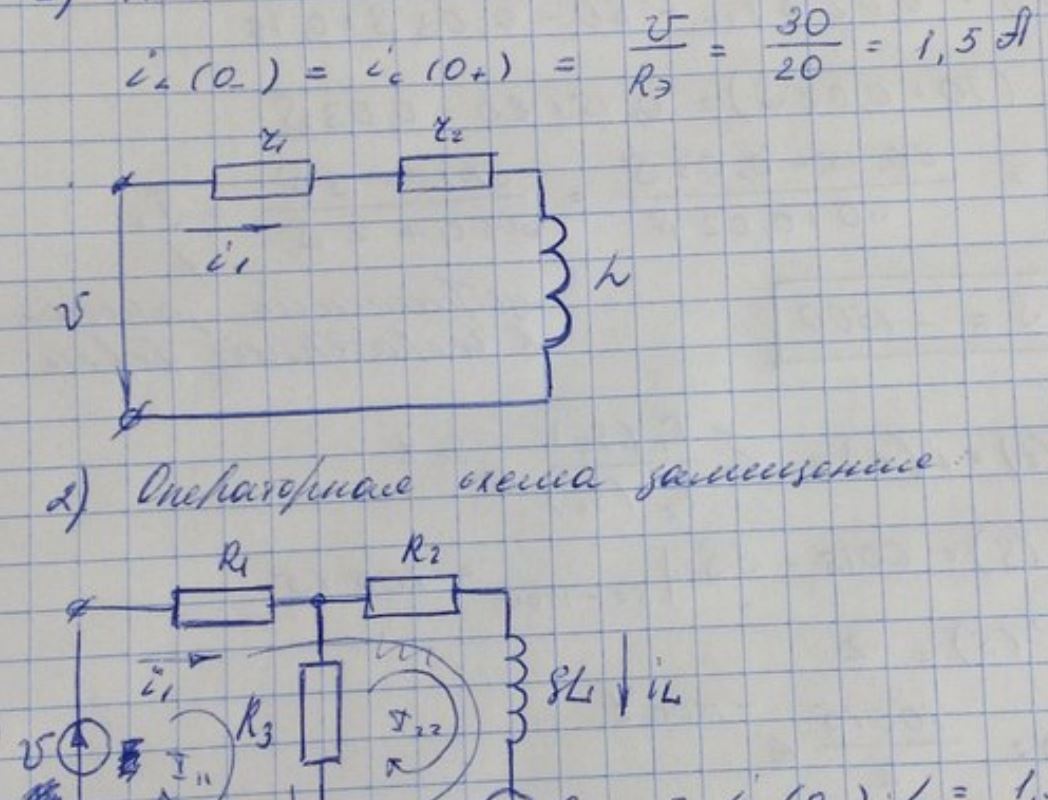 i_L (0_-) = i_L (0_+) = U/R_Э = 30/20 = 1,5 А
r_1 r_2
i_1
U
L
2) Операторная схема замещение
R_1 R_2
i_1
R_3
SL i_L
U
I_11
I_22